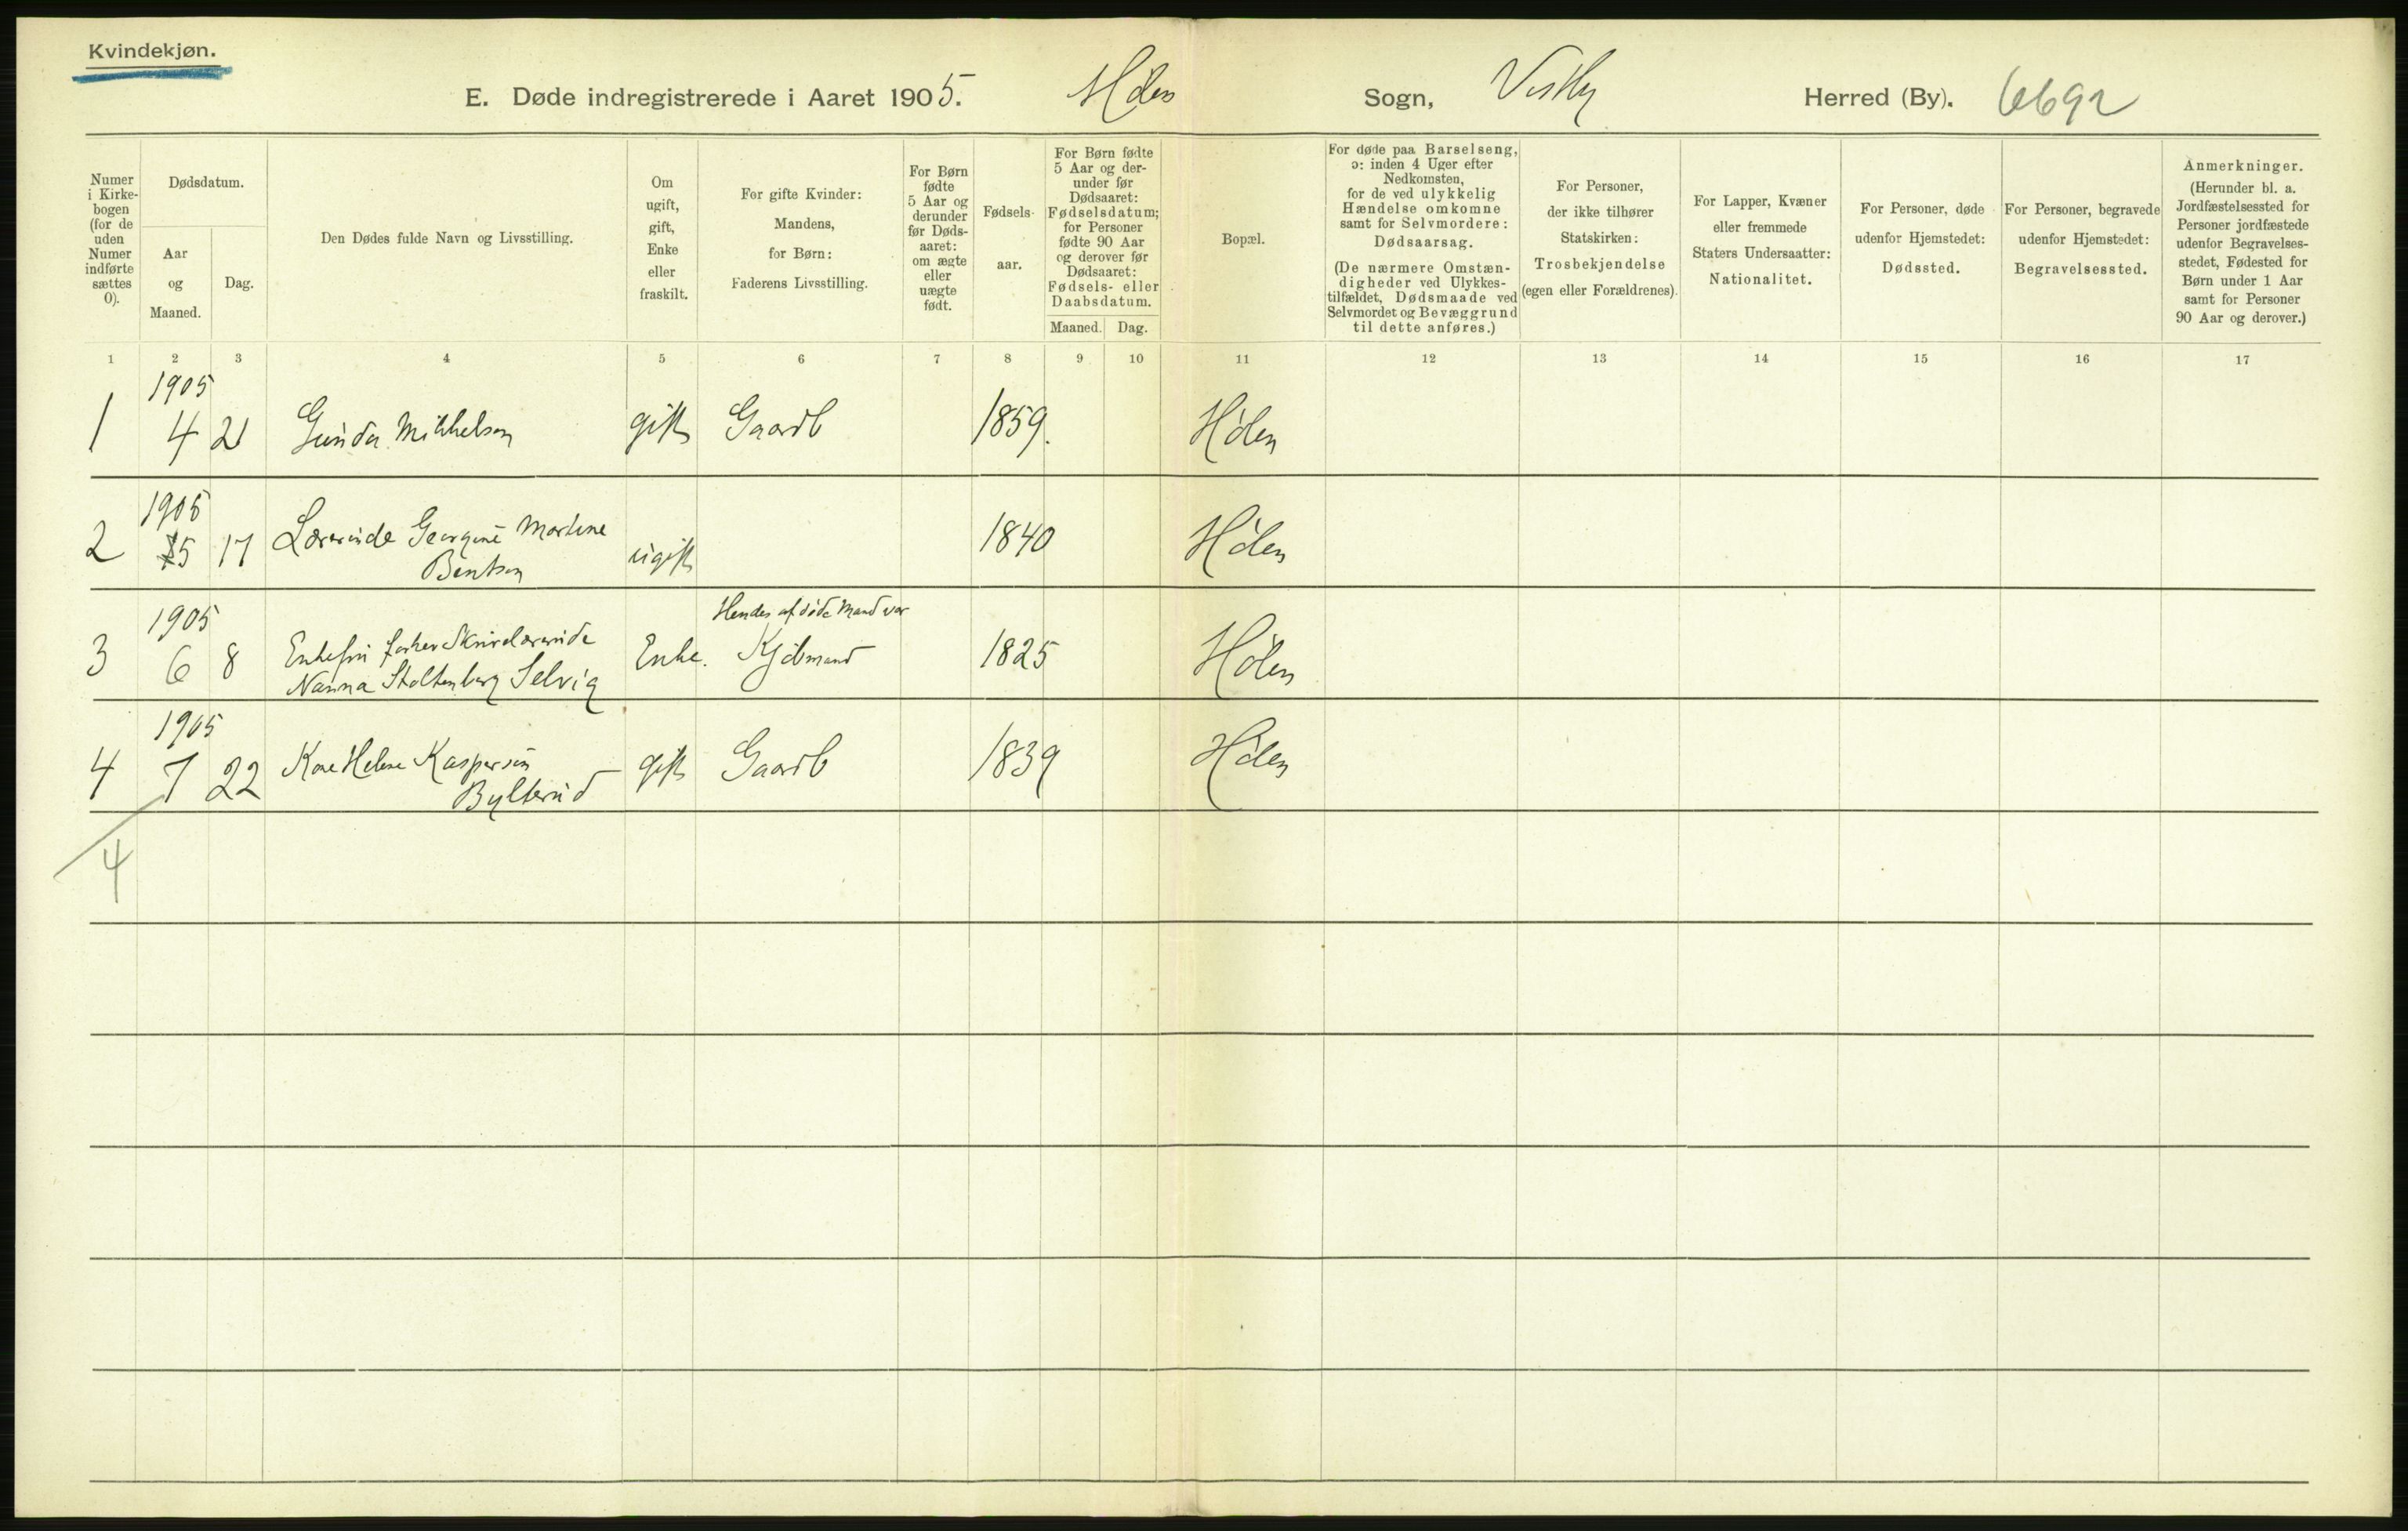 Kvindekjøn.
E. Døde indregistrerede i Aaret 1905. Hølen Sogn, Vestby Herred (By). 6692
Numer i Kirke-bogen (for de uden Numer indførte sættes 0).
Dødsdatum.
Aar og Maaned.
Dag.
Den Dødes fulde Navn og Livsstilling.
Om ugift, gift, Enke eller fraskilt.
For gifte Kvinder: Mandens, for Børn: Faderens Livsstilling.
For Børn fødte 5 Aar og derunder før Døds-aaret: om ægte eller uægte født.
Fødsels-aar.
For Børn fødte 5 Aar og der-under før Dødsaaret: Fødselsdatum; for Personer fødte 90 Aar og derover før Dødsaaret: Fødsels- eller Daabsdatum.
Maaned. Dag.
Bopæl.
For døde paa Barselseng, ɔ: inden 4 Uger efter Nedkomsten, for de ved ulykkelig Hændelse omkomne samt for Selvmordere: Dødsaarsag. (De nærmere Omstæn-digheder ved Ulykkes-tilfældet, Dødsmaade ved Selvmordet og Bevæggrund til dette anføres.)
For Personer, der ikke tilhører Statskirken: Trosbekjendelse (egen eller Forældrenes).
For Lapper, Kvæner eller fremmede Staters Undersaatter: Nationalitet.
For Personer, døde udenfor Hjemstedet: Dødssted.
For Personer, begravede udenfor Hjemstedet: Begravelsessted.
Anmerkninger. (Herunder bl. a. Jordfæstelsessted for Personer jordfæstede udenfor Begravelses-stedet, Fødested for Børn under 1 Aar samt for Personer 90 Aar og derover.)
1 2 3 4 5 6 7 8 9 10 11 12 13 14 15 16 17
1905
1 4 21 Gunda Mikkelsen gift Gaardb 1859. Hølen
1905
2 5 17 Lærerinde Georgine Martine ugift 1840 Hølen
Bentsen
1905 Hendes afdøde Mand var
3 6 8 Enkefru forhen Skrivelærerinde Enke. Kjøbmand 1825 Hølen
Nanna Stoltenberg Selvig
1905
4 7 22 Kone Helene Kaspersen gift Gaardb 1839 Hølen
Bylterud
4